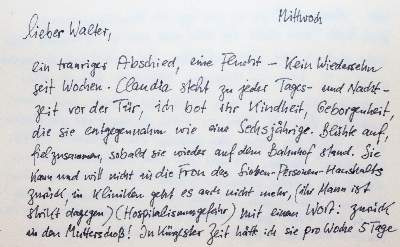 Mittwoch
Lieber Walter,
ein trauriger Abschied, eine Flucht – Kein Wiedersehn
seit Wochen. Claudia steht zu jeder Tages- und Nacht-
zeit vor der Tür, ich bot ihr Kindheit, Geborgenheit,
die sie entgegennahm wie eine Sechsjährige. Blühte auf,
fiel zusammen, sobald sie wieder auf dem Bahnhof stand. Sie
kann und will nicht in die Fron des Sieben-Personen-Haushalts
zurück, in Kliniken geht es auch nicht mehr, (ihr Mann ist
strikt dagegen) (Hospitalismusgefahr) mit einem Wort: zurück
in den Mutterschoß! In kürzester Zeit hätt ich sie pro Woche 5 Tage